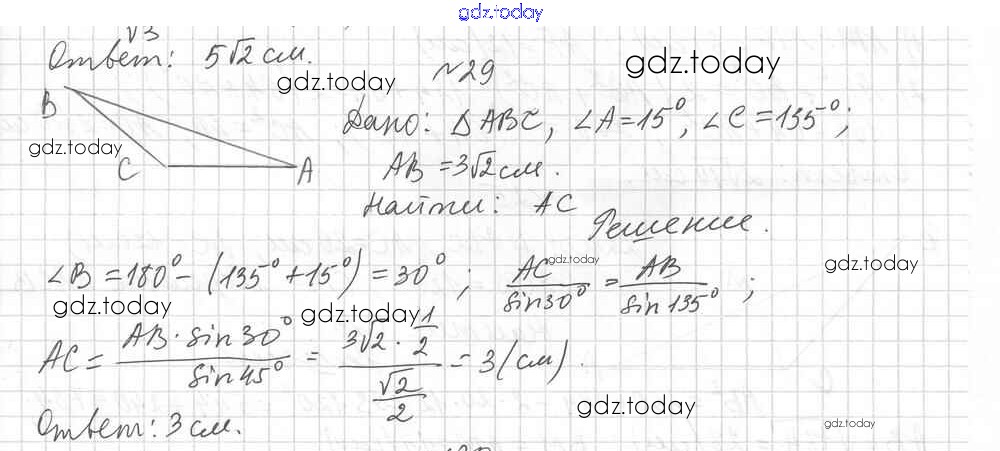 gdz.today
√3
Ответ: 5√2 см.
gdz.today
№29
gdz.today
B
C
A
gdz.today
Дано: ΔABC, ∠A=15°, ∠C=135°;
AB=3√2 см.
Найти: AC
Решение.
∠B=180°-(135°+15°)=30°; AC/sin30°=AB/sin135°;
gdz.today
gdz.today
gdz.today
gdz.today
AC=(AB·sin30°)/(sin45°)=(3√2·1/2)/(√2/2)=3(см).
gdz.today
Ответ: 3 см.
gdz.today